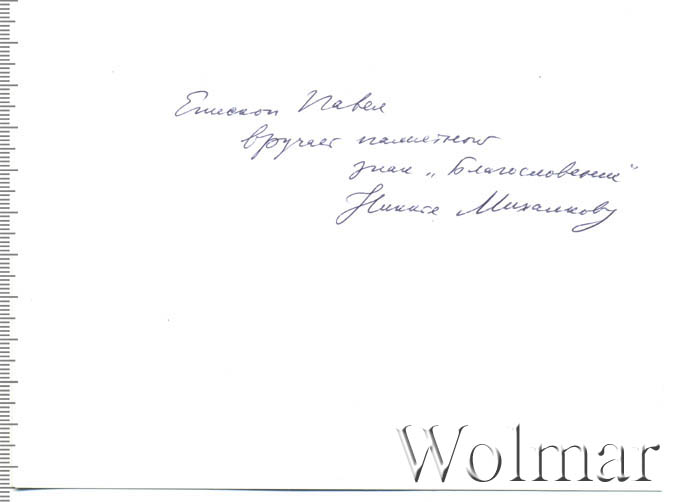 Епископ Павел
вручает памятный
знак „Благословение"
Никите Михалкову
Wolmar